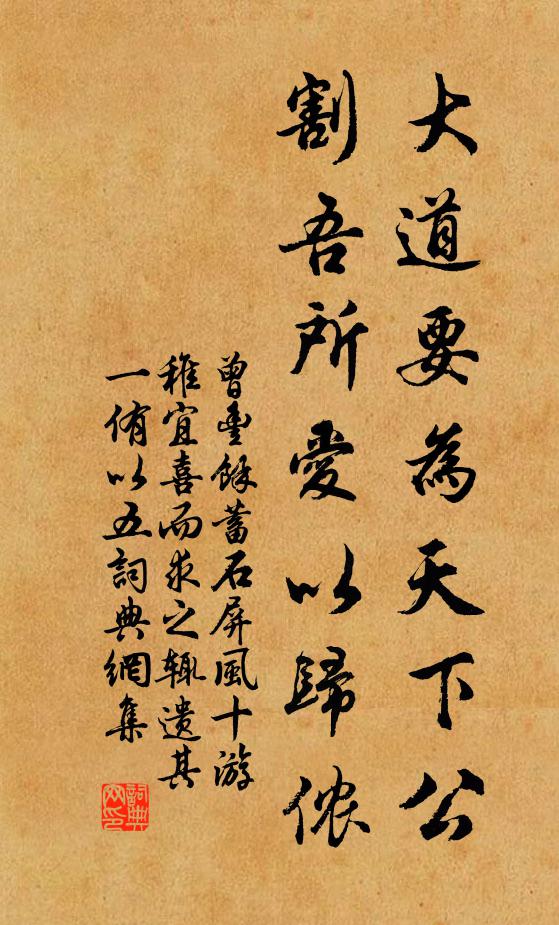 大道要為天下公
割吾所愛以歸侬
曾豊餘蓄石屏風十游
稚宜喜而求之辄遗其
一侑以五詞典網集
詞典網印